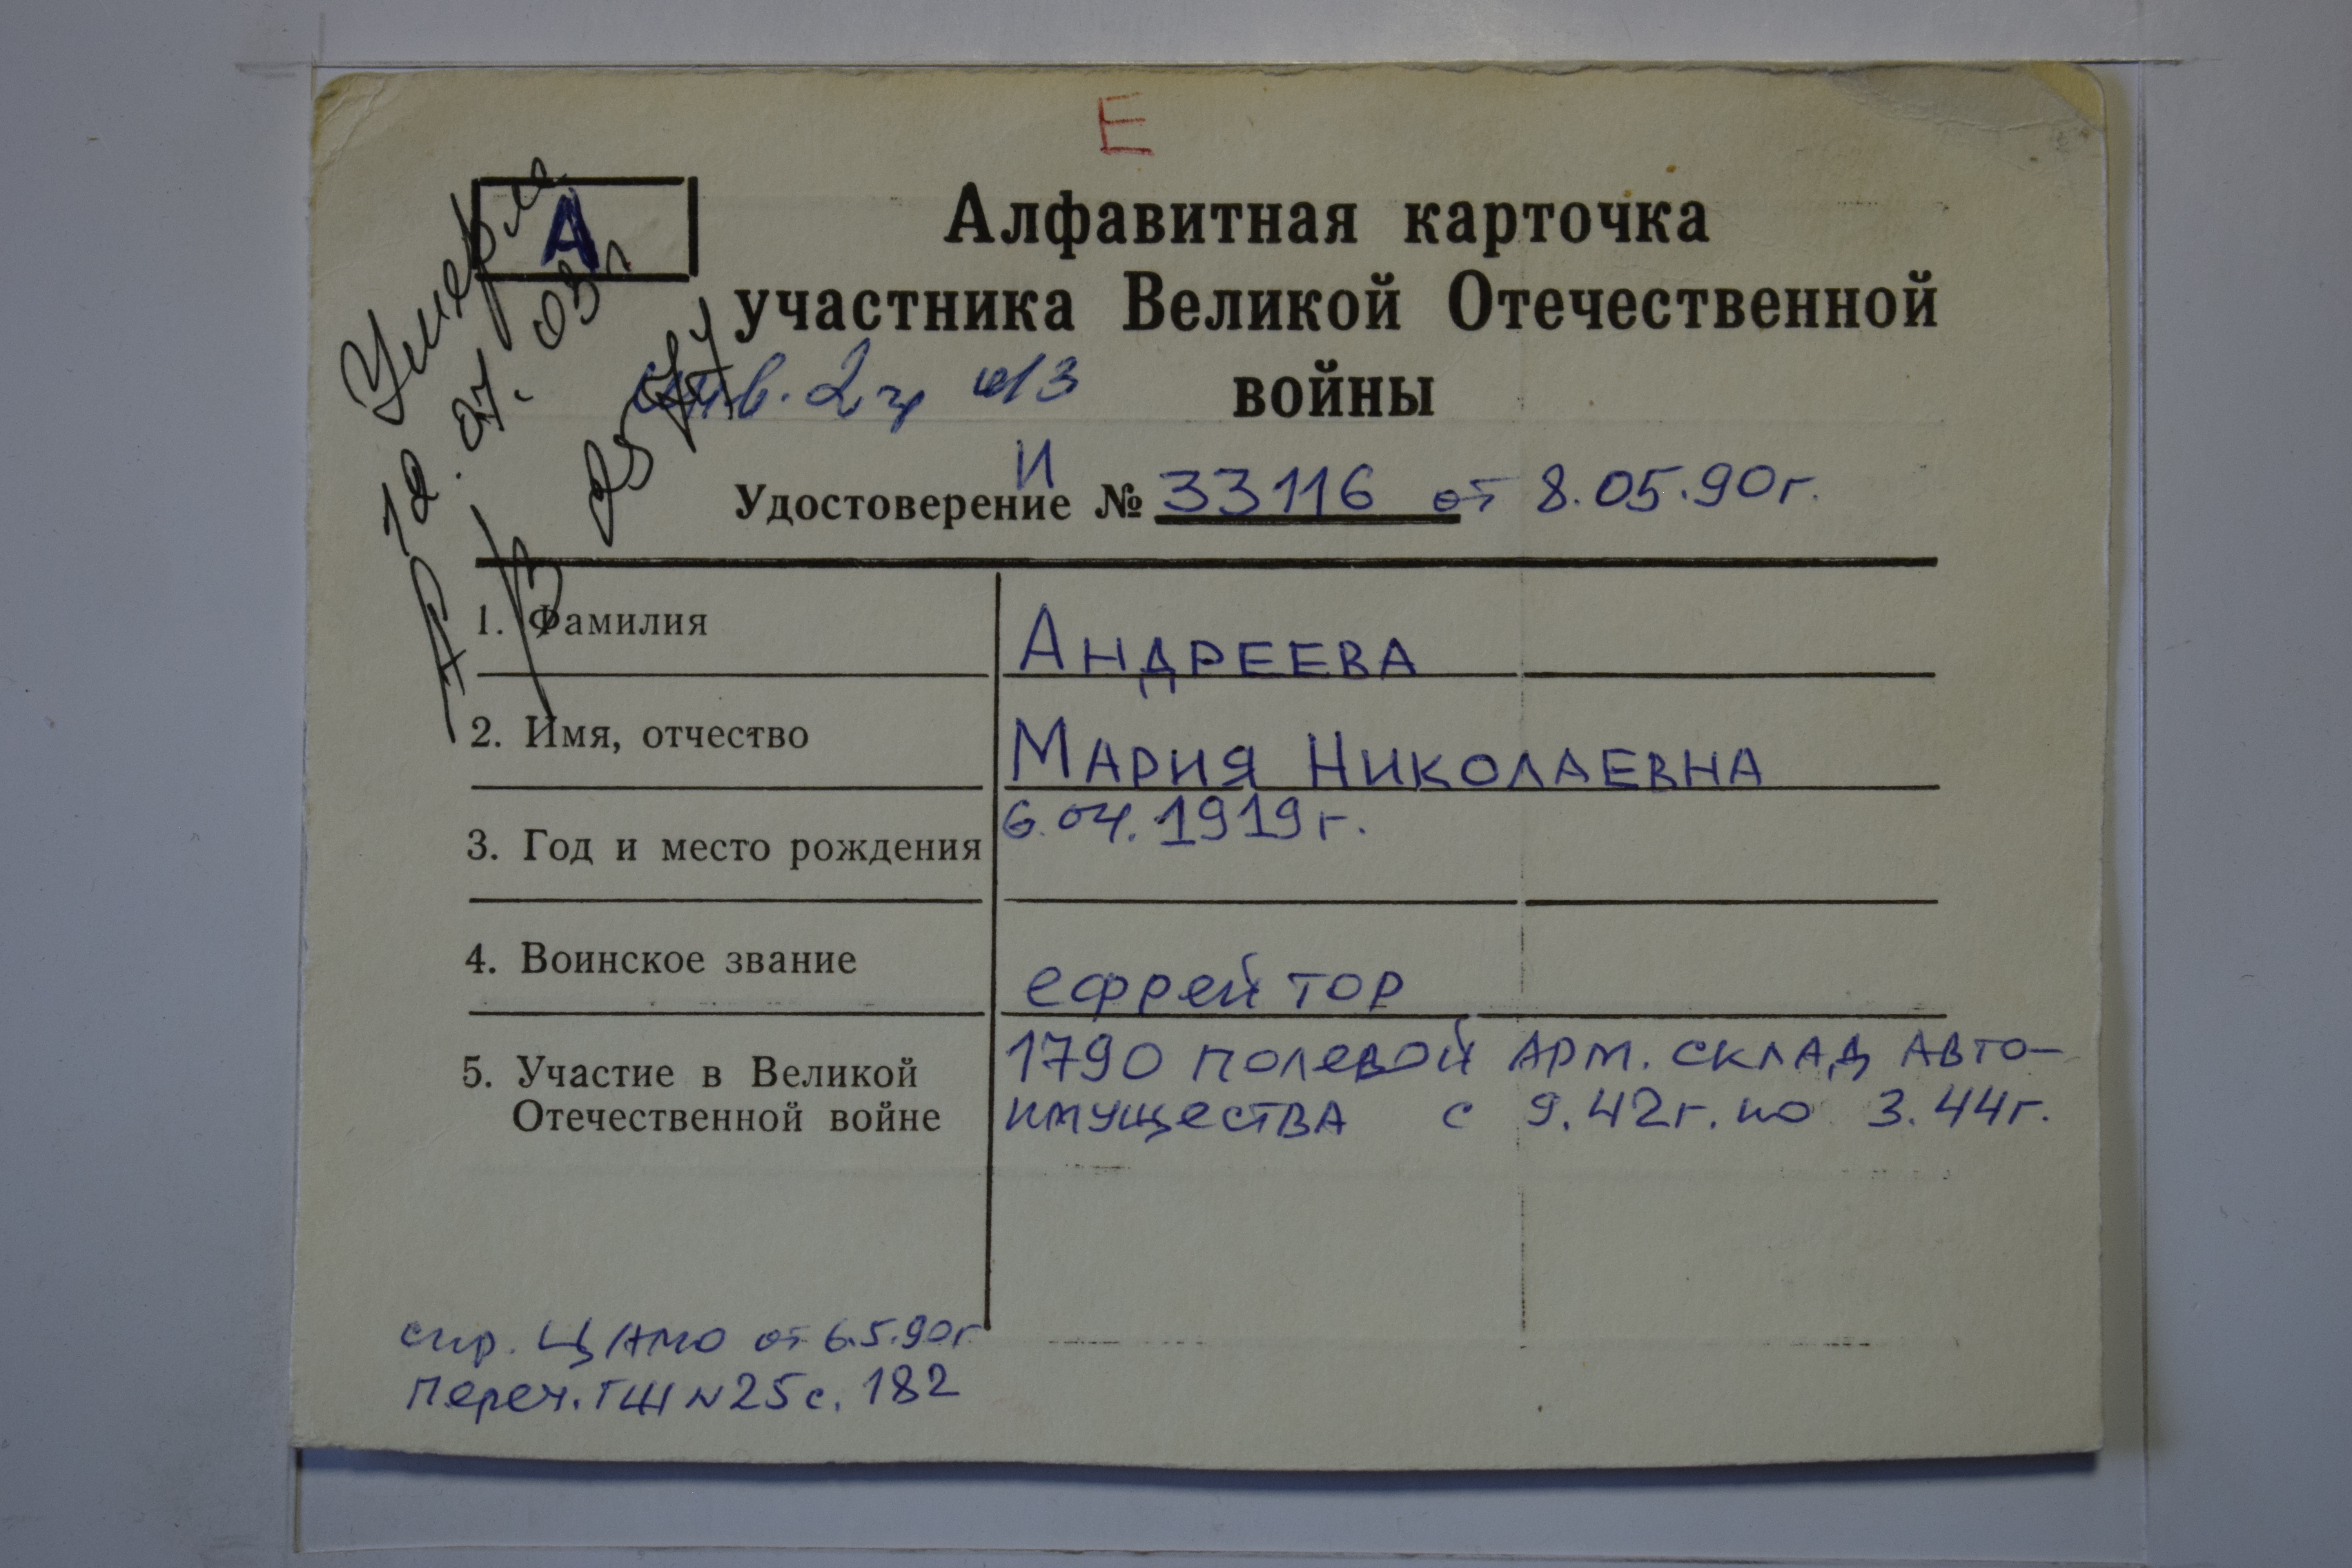 Е
А
Умерла
Алфавитная карточка
участника Великой Отечественной
войны
инв. 2 гр
И
Удостоверение № 33116 от 8.05.90г.
1. Фамилия АНДРЕЕВА
2. Имя, отчество МАРИЯ НИКОЛАЕВНА
3. Год и место рождения 6.04.1919г.
4. Воинское звание ефрейтор
5. Участие в Великой 1790 полевой арм. склад авто-
Отечественной войне имущества с 9.42г. по 3.44г.
спр. ЦАМО от 6.5.90г
Переч. ГШ № 25 с. 182